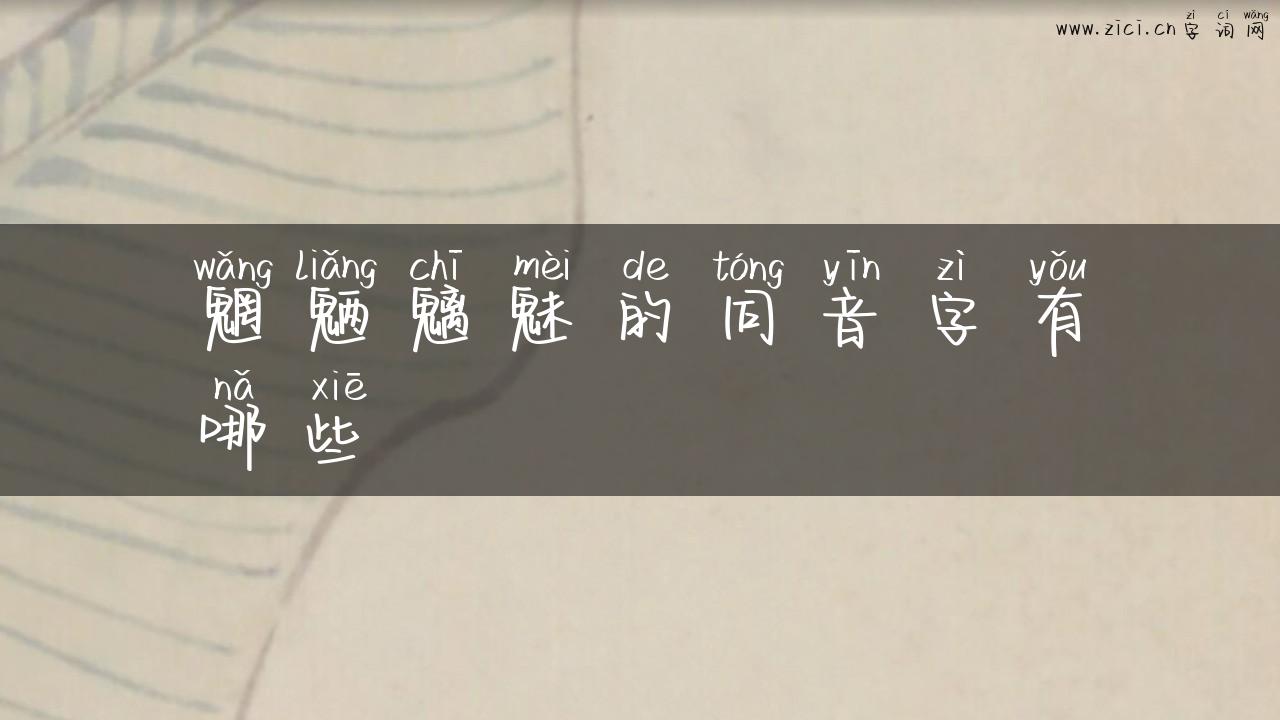 zì cí wǎng
www.zici.cn 字词网
wǎng liǎng chī mèi de tóng yīn zì yǒu
魍魉魑魅的同音字有
nǎ xiē
哪些